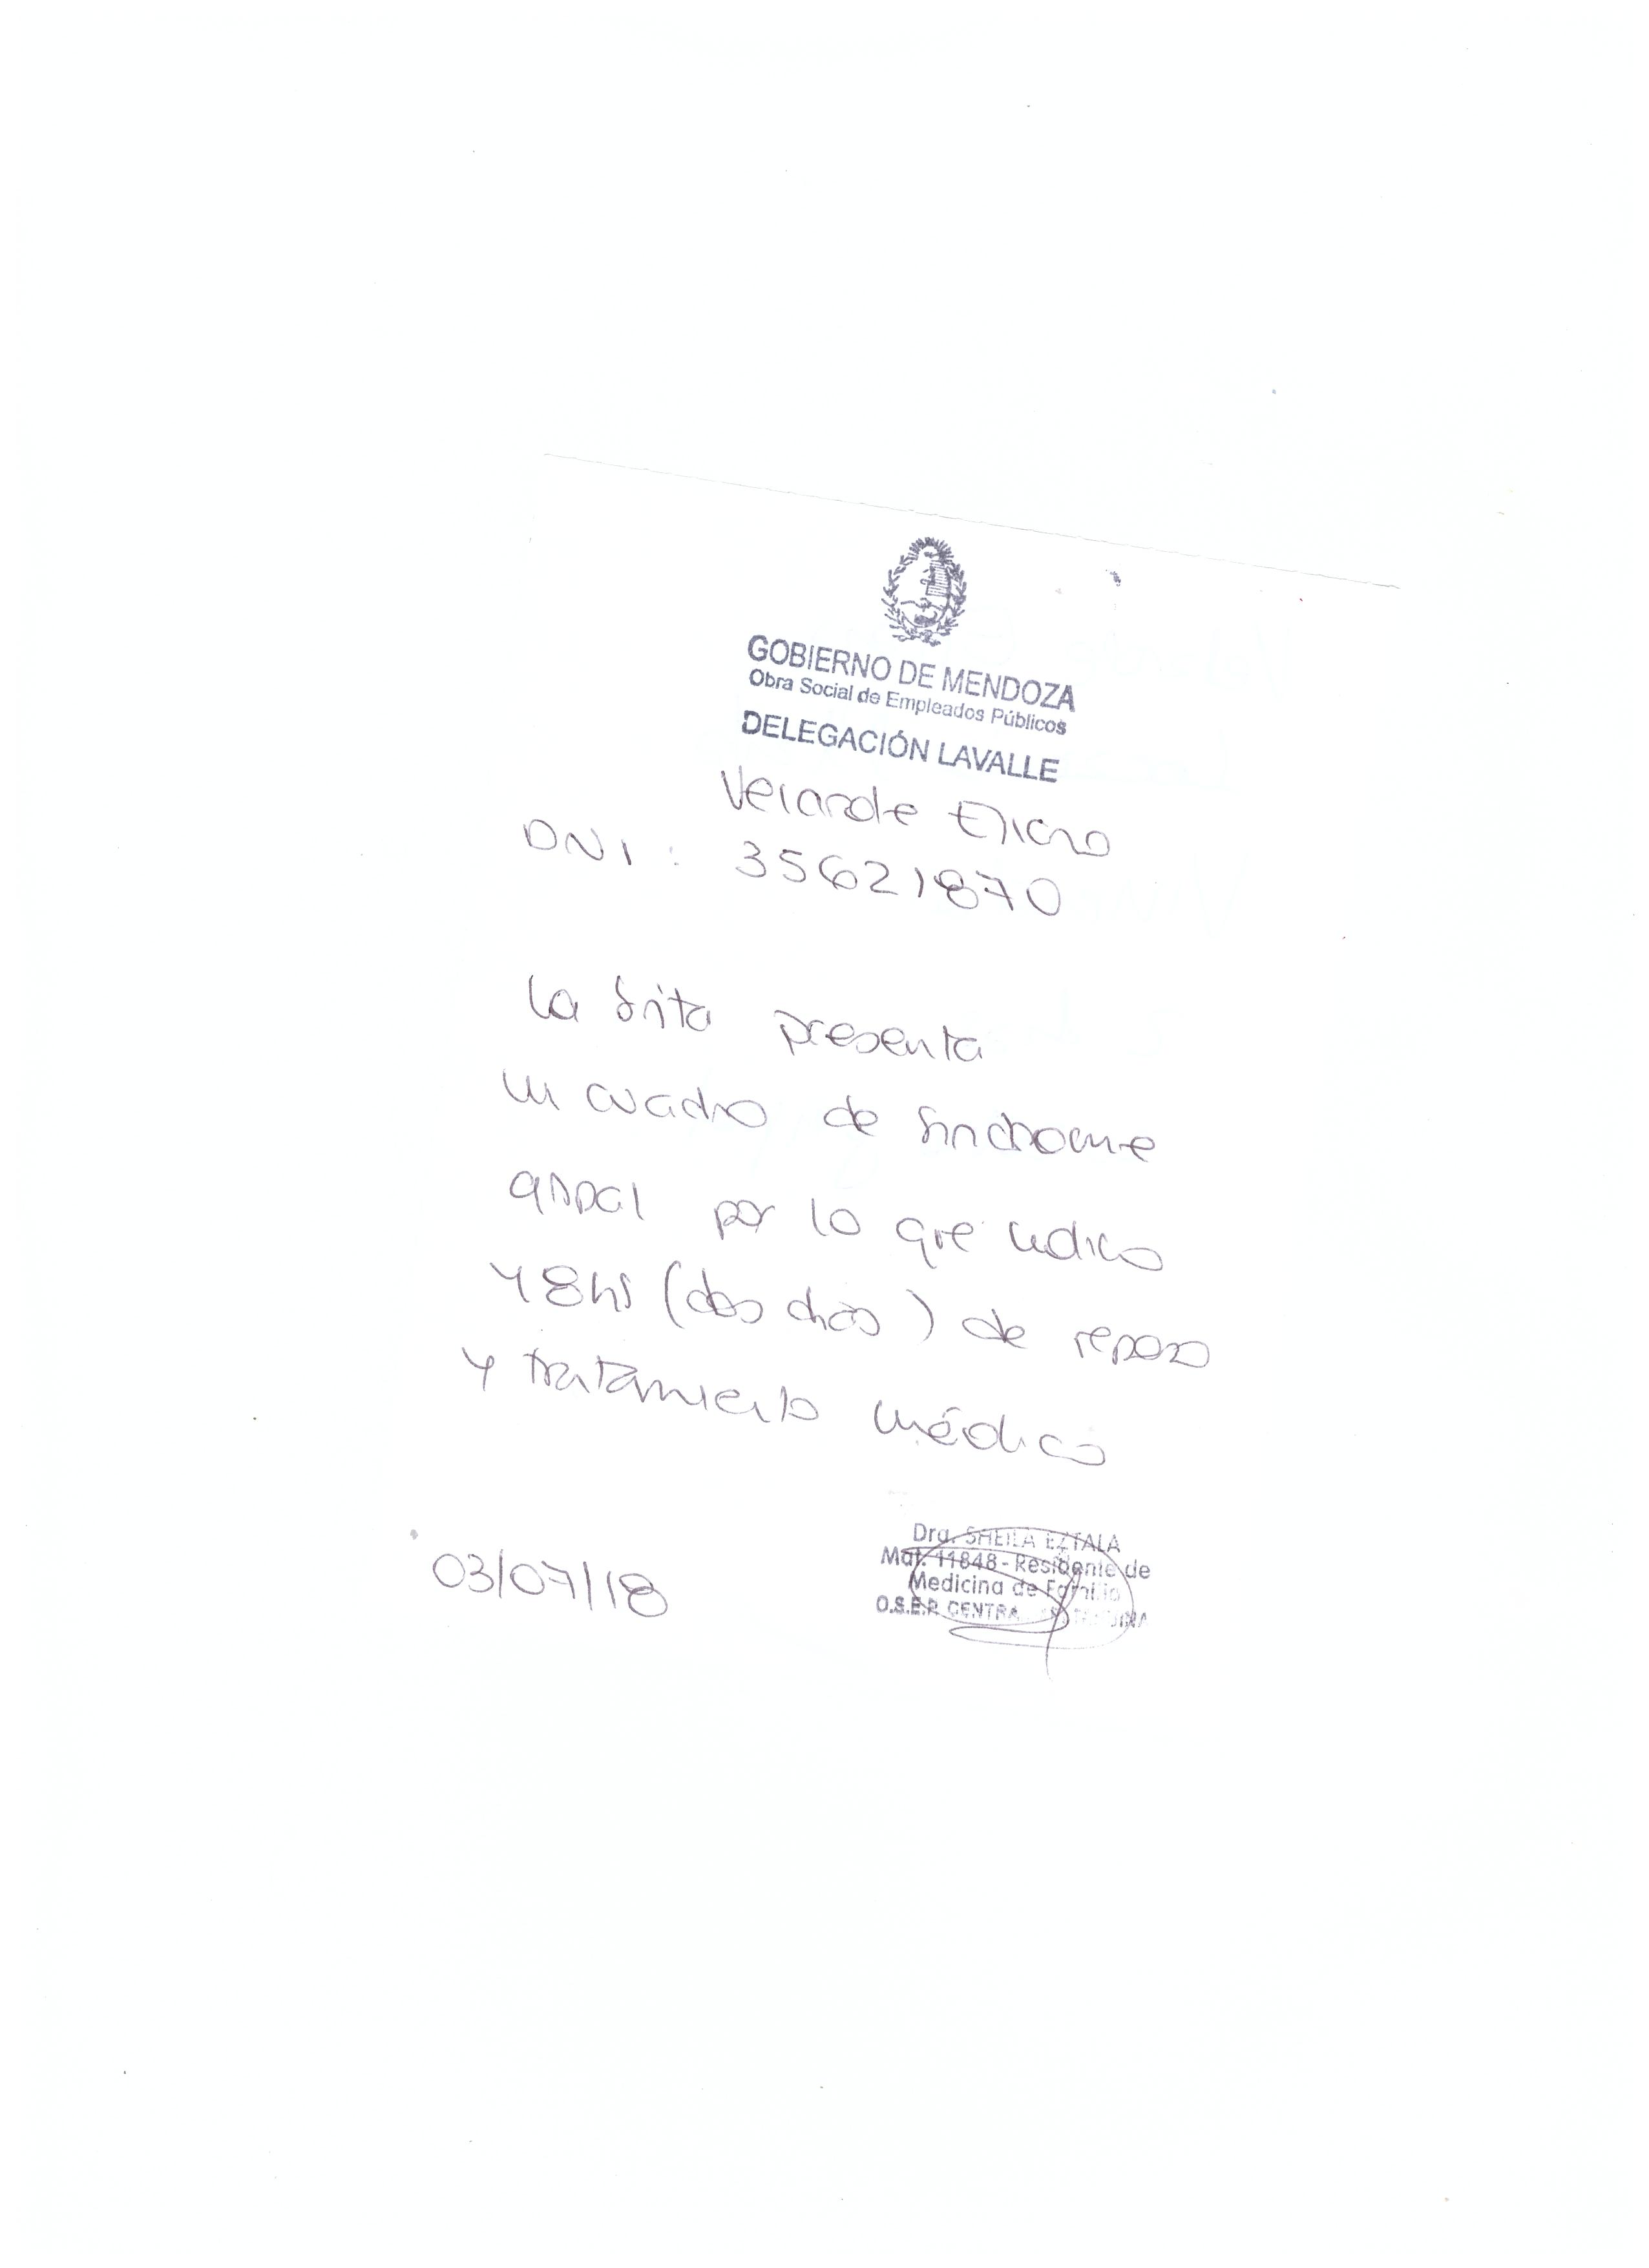 GOBIERNO DE MENDOZA
Obra Social de Empleados Públicos
DELEGACIÓN LAVALLE
DNI: 35621870
La Srita presenta
un cuadro de Sindrome
gripal por lo que indico
48hs (dos dias) de reposo
y tratamiento médico
03/07/18
Dra. SHEILA EZTALA
Mat. 11848 - Residente de
Medicina de Familia
O.S.E.P.